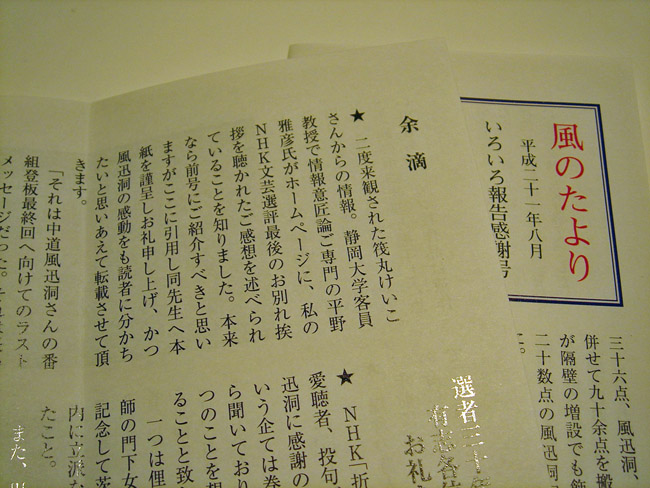 風のたより
平成二十一年八月
いろいろ報告感謝号
三十六点、風迅洞、
併せて九十余点を搬
が隔壁の増設でも飾
二十数点の風迅洞
た。
余滴
★ 二度来観された筏丸けいこ
さんからの情報。静岡大学客員
教授で情報意匠論ご専門の平野
雅彦氏がホームページに、私の
NHK文芸選評最後のお別れ挨
拶を聴かれたご感想を述べられ
ていることを知りました。本来
なら前号にご紹介すべきと思い
ますがここに引用し同先生へ本
紙を謹呈しお礼申し上げ、かつ
風迅洞の感動をも読者に分かち
たいと思いあえて転載させて頂
きます。
「それは中道風迅洞さんの番
組登板最終回へ向けてのラスト
メッセージだった。それは
選者三十
有志
お礼
★ NHK「折
愛聴者、投句
迅洞に感謝の
いう企ては券
ら聞いており
つのことを想
ることと致
一つは俚
師の門下女
記念して茨
内に立派な
たこと。
また、